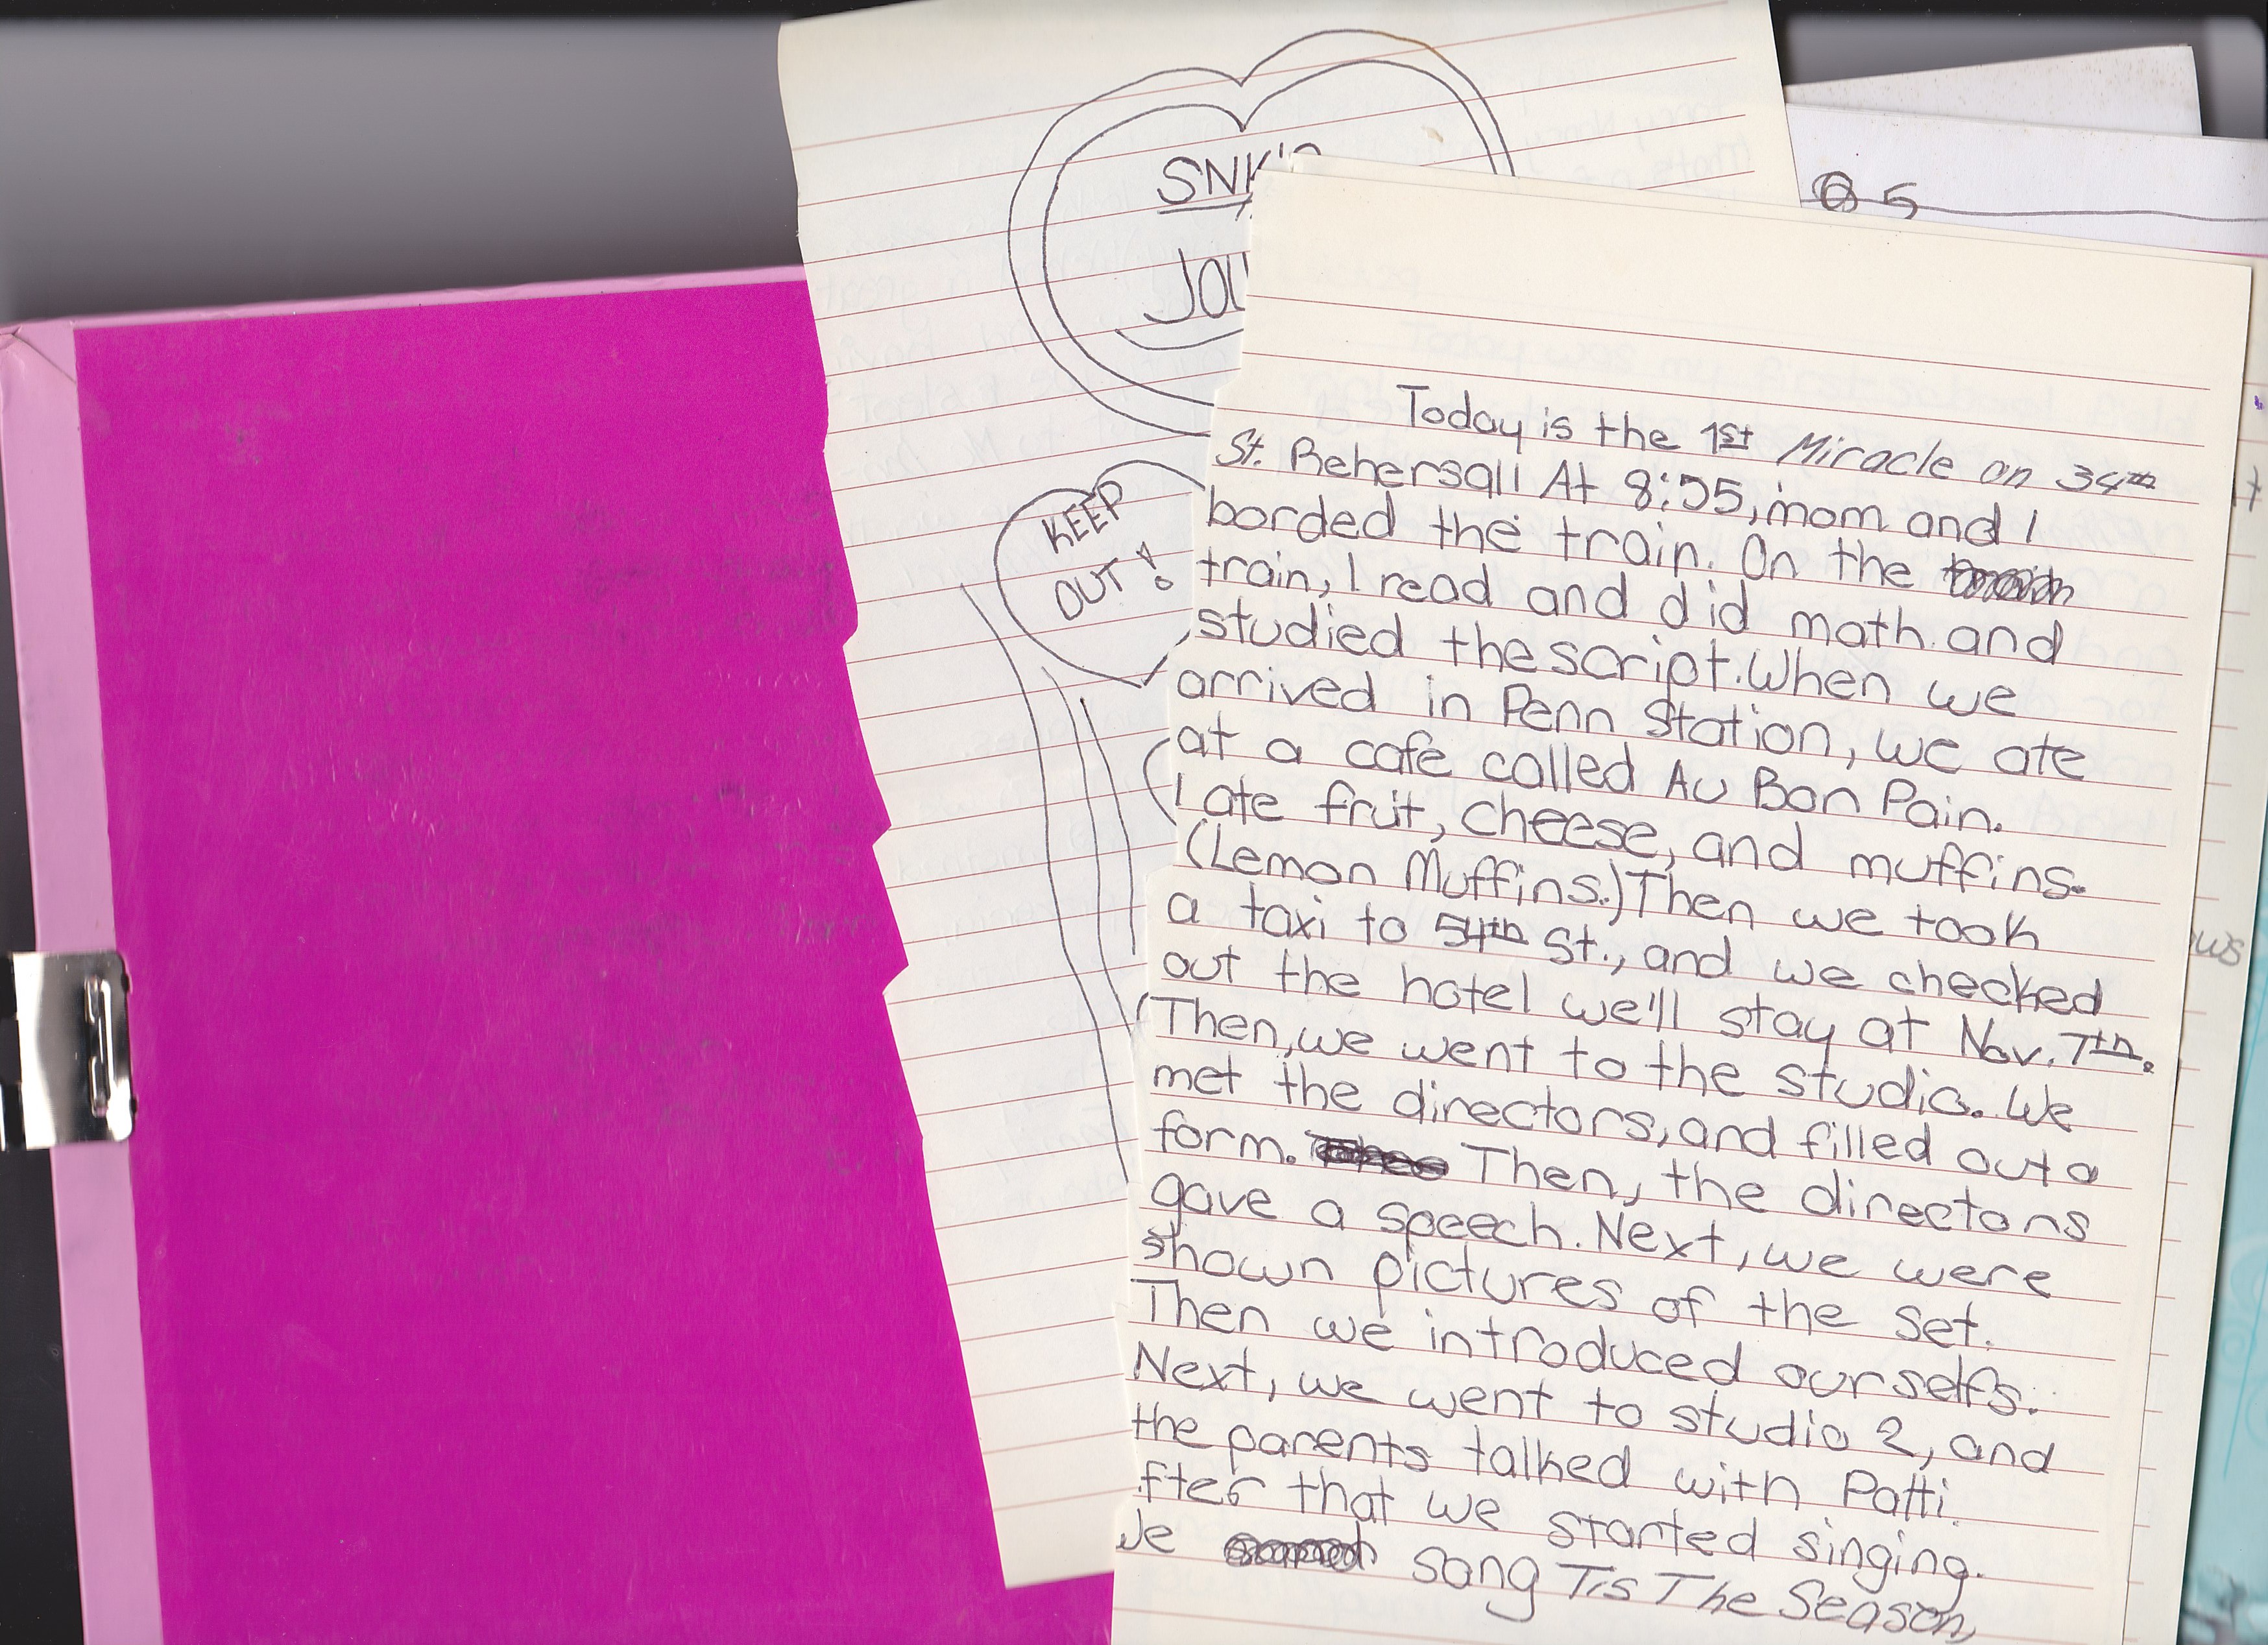 SNK's
JOU
KEEP
OUT!
5
Today is the 1st Miracle on 34th
St. Rehersal! At 8:55, mom and I
borded the train. On the
train, I read and did math and
studied the script. When we
arrived in Penn Station, we ate
at a cafe called Au Bon Pain.
I ate fruit, cheese, and muffins.
(Lemon Muffins.) Then we took
a taxi to 54th St., and we checked
out the hotel we'll stay at Nov. 7th.
Then, we went to the studio. We
met the directors, and filled out a
form. Then, the directors
gave a speech. Next, we were
shown pictures of the set.
Then we introduced ourselfs.
Next, we went to studio 2, and
the parents talked with Patti.
fter that we started singing.
We sang Tis The Season,
ws